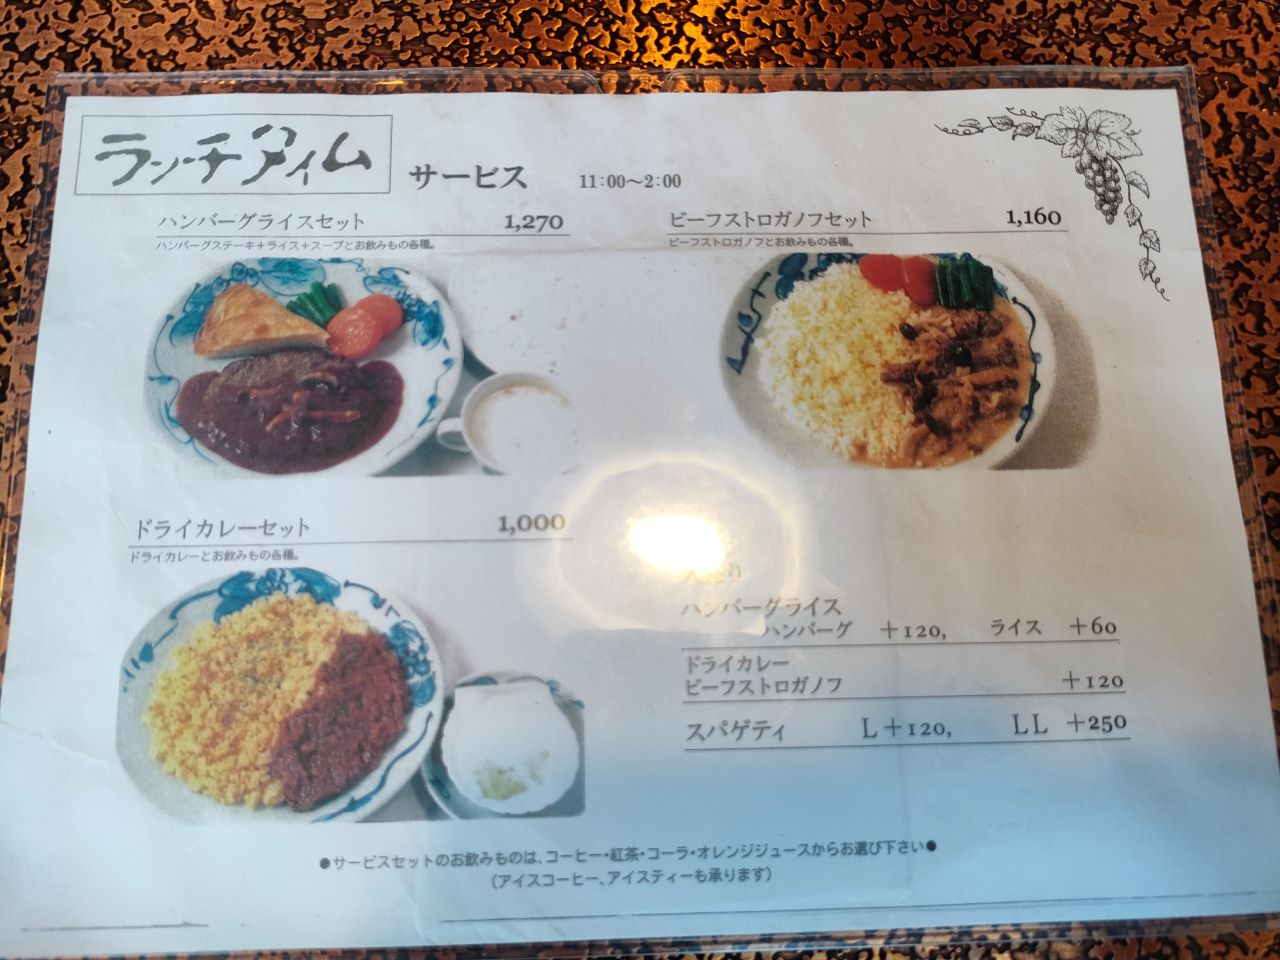 ランチタイム サービス 11:00～2:00
ハンバーグライスセット 1,270
ハンバーグステーキ＋ライス＋スープとお飲みもの各種。
ビーフストロガノフセット 1,160
ビーフストロガノフとお飲みもの各種。
ドライカレーセット 1,000
ドライカレーとお飲みもの各種。
ハンバーグライス
ハンバーグ ＋120, ライス ＋60
ドライカレー
ビーフストロガノフ ＋120
スパゲティ L＋120, LL ＋250
●サービスセットのお飲みものは、コーヒー・紅茶・コーラ・オレンジジュースからお選び下さい●
(アイスコーヒー、アイスティーも承ります)